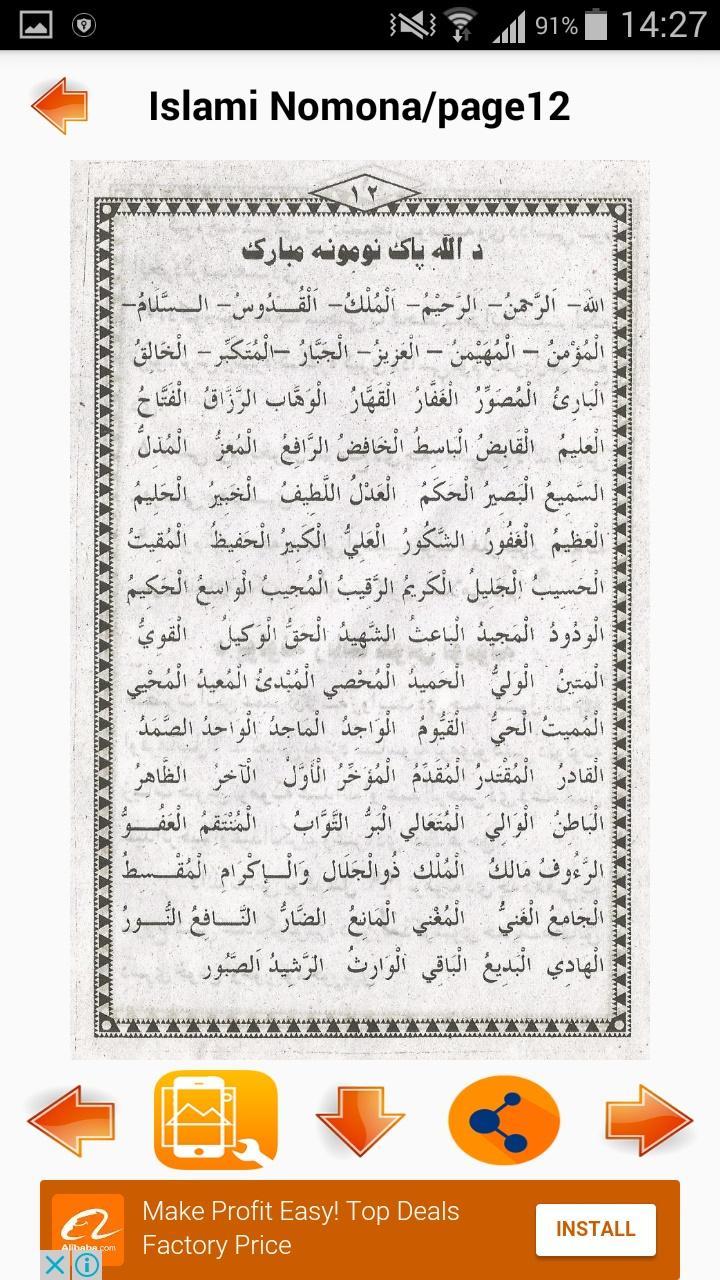 91% 14:27
Islami Nomona/page12
١٢
د الله پاک نومونه مبارک
الله- اَلرَّحْمنُ- اَلرَّحِيْمُ- اَلْمُلْكُ- اَلْقُــدُوسُ- الــسَّلَامُ-
الْمُؤْمِنُ – الْمُهَيْمِنُ – الْعَزِيزُ- الْجَبَّارُ –الْمُتَكَبِّر- الْخَالِقُ
الْبَارِئُ الْمُصَوِّرُ الْغَفَّارُ الْقَهَّارُ الْوَهَّاب الرَّزَّاقُ الْفَتَّاحُ
الْعَلِيمُ الْقَابِضُ الْبَاسِطُ الْخَافِضُ الرَّافِعُ الْمُعِزُّ الْمُذِلُّ
السَّمِيعُ الْبَصِيرُ الْحَكَمُ الْعَدْلُ اللَّطِيفُ الْخَبِيرُ الْحَلِيمُ
الْعَظِيمُ الْغَفُورُ الشَّكُورُ الْعَلِيُّ الْكَبِيرُ الْحَفِيظُ الْمُقِيتُ
الْحَسِيبُ الْجَلِيلُ الْكَرِيمُ الرَّقِيبُ الْمُجِيبُ الْوَاسِعُ الْحَكِيمُ
الْوَدُودُ الْمَجِيدُ الْبَاعِثُ الشَّهِيدُ الْحَقُّ الْوَكِيلُ الْقَوِيُّ
الْمَتِينُ الْوَلِيُّ الْحَمِيدُ الْمُحْصِي الْمُبْدِئُ الْمُعِيدُ الْمُحْيِي
الْمُمِيتُ الْحَيُّ الْقَيُّومُ الْوَاجِدُ الْمَاجِدُ الْوَاحِدُ الصَّمَدُ
الْقَادِرُ الْمُقْتَدِرُ الْمُقَدِّمُ الْمُؤَخِّرُ الْأَوَّلُ الْآخِرُ الظَّاهِرُ
الْبَاطِنُ الْوَالِيَ الْمُتَعَالِي الْبَرُّ التَّوَّابُ الْمُنْتَقِمُ الْعَفُــوُّ
الرَّءُوفُ مَالِكُ الْمُلْكِ ذُوالْجَلَالِ وَالْــإِكْرَامِ الْمُقْــسِطُ
الْجَامِعُ الْغَنِيُّ الْمُغْنِي الْمَانِعُ الضَّارُّ النَّــافِعُ النُّــورُ
الْهَادِي الْبَدِيعُ الْبَاقِي الْوَارِثُ الرَّشِيدُ اَلصَّبُور
Make Profit Easy! Top Deals
Factory Price
INSTALL
Alibaba.com